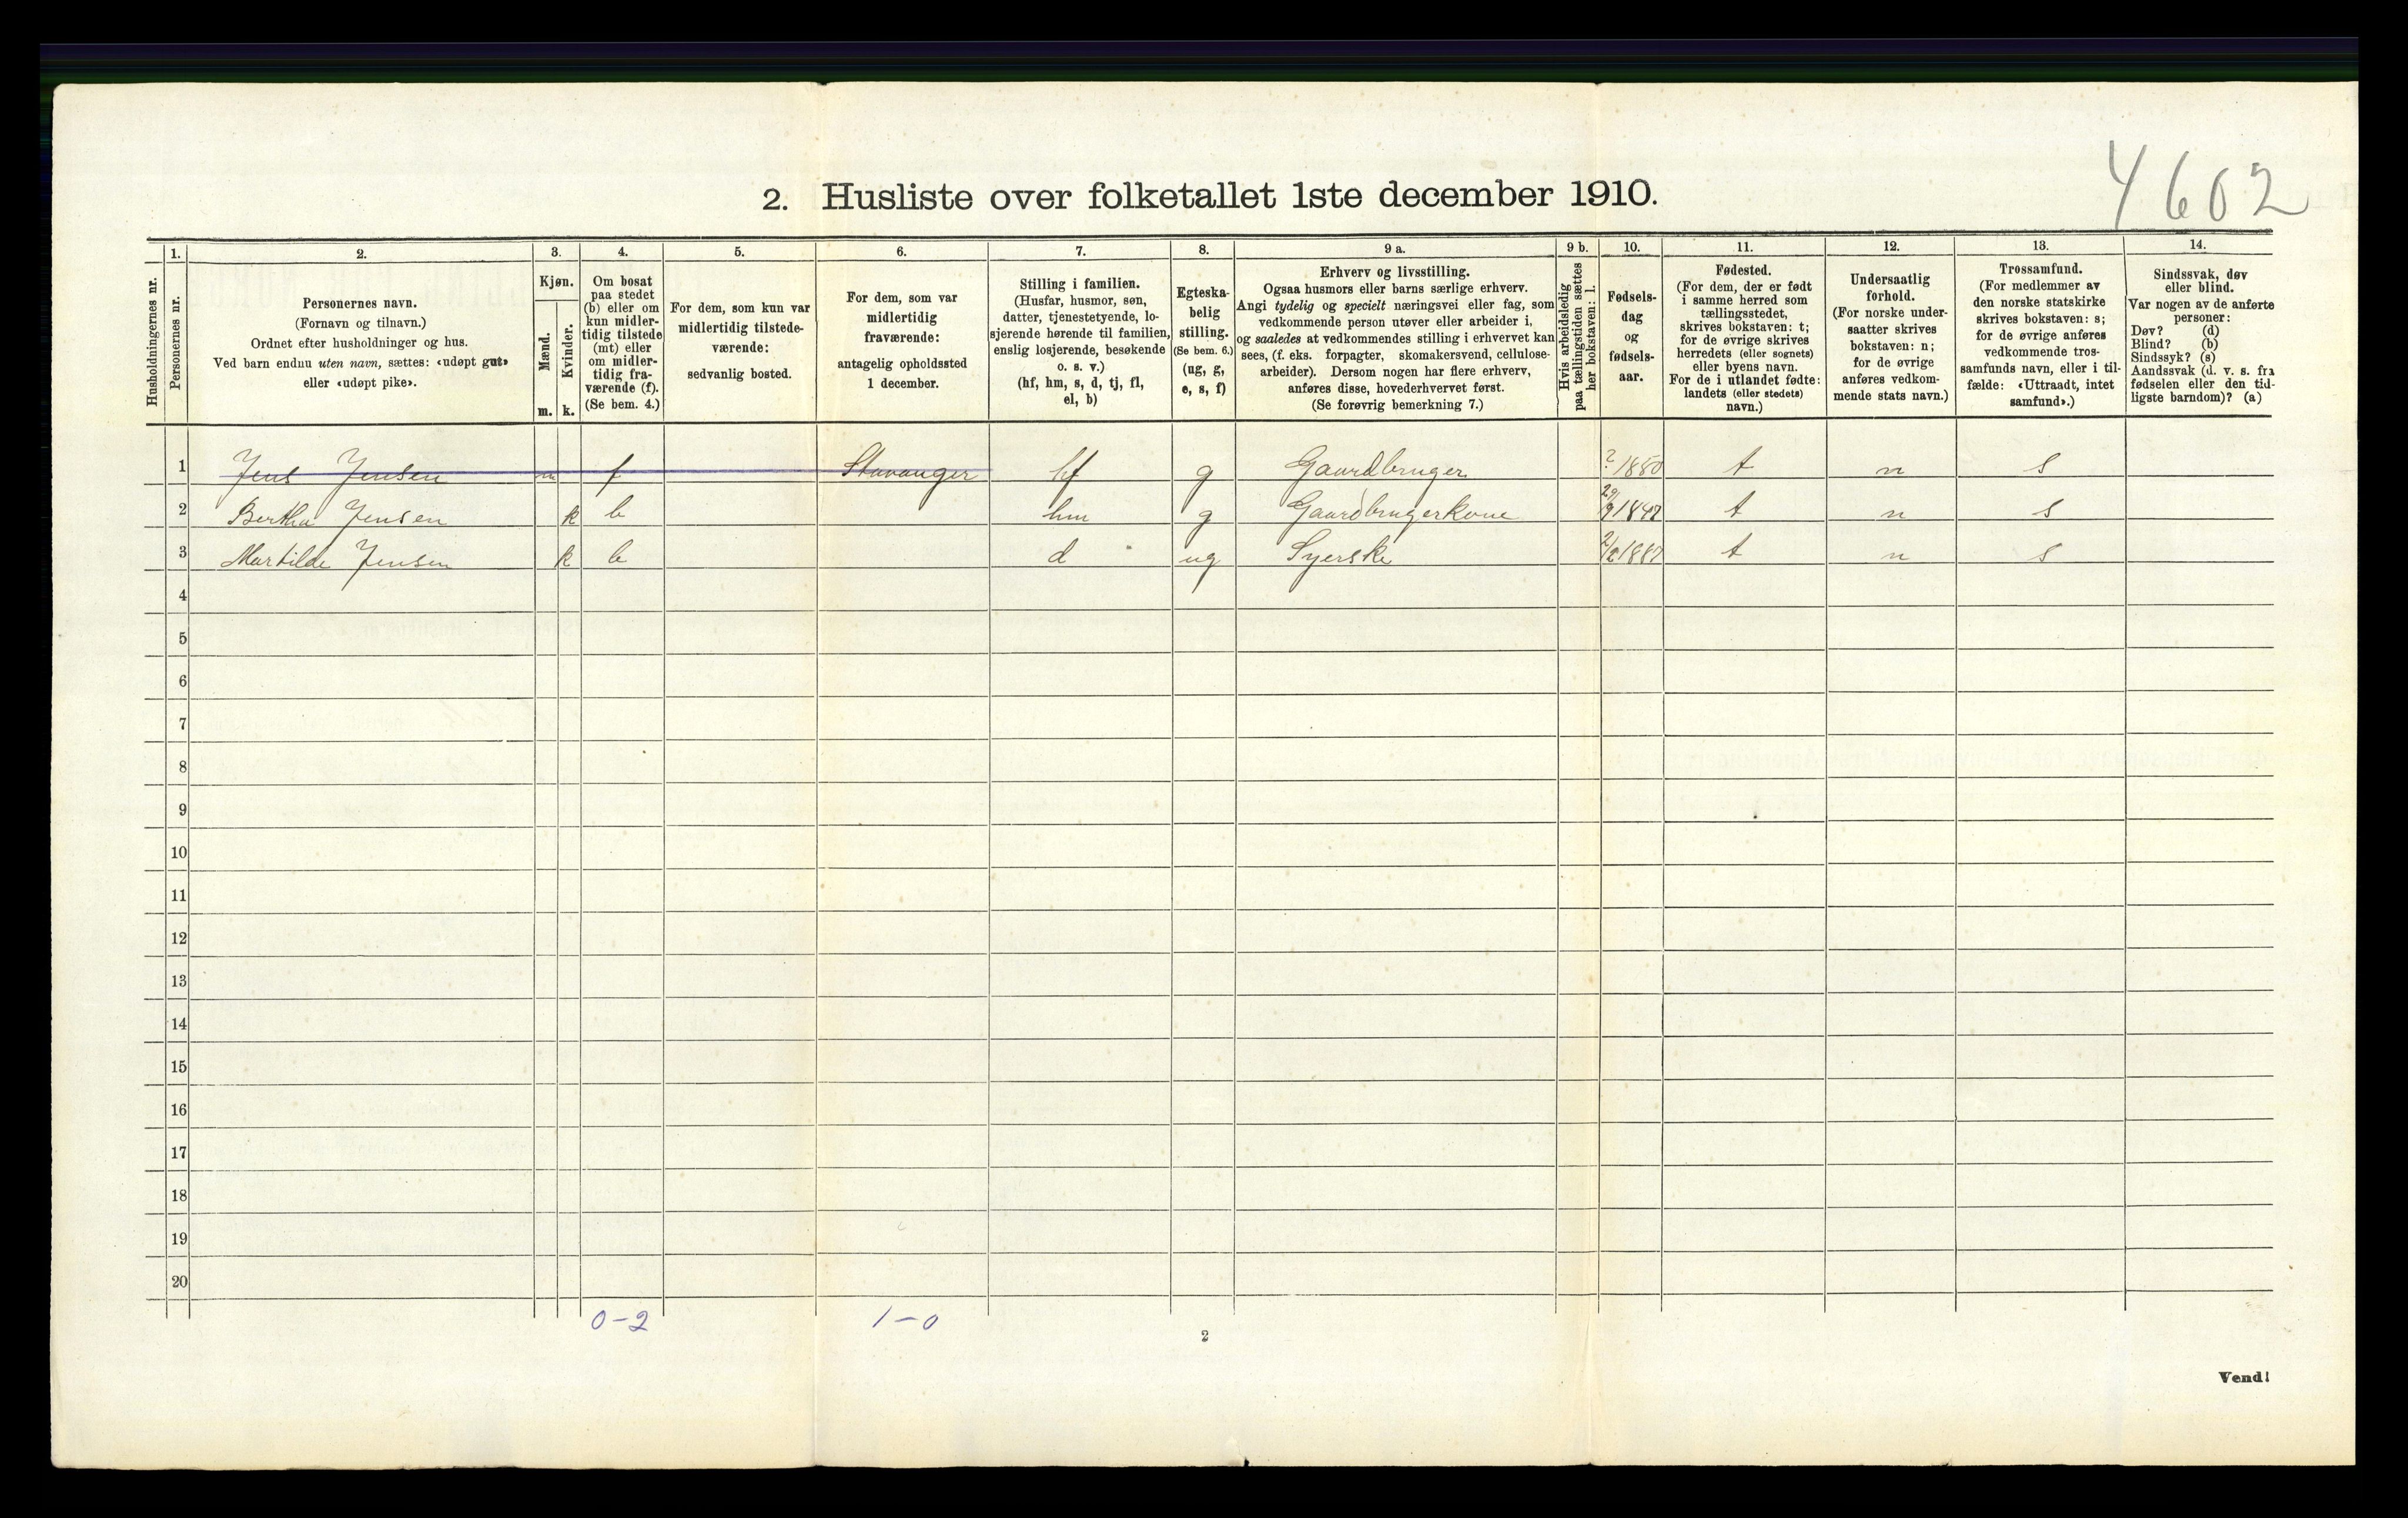 4602
2. Husliste over folketallet 1ste december 1910.
Husholdningernes nr.
1.
Personernes nr.
2.
Personernes navn.
(Fornavn og tilnavn.)
Ordnet efter husholdninger og hus.
Ved barn endnu uten navn, sættes: «udøpt gut»
eller «udøpt pike».
3.
Kjøn.
Mænd.
Kvinder.
m. k.
4.
Om bosat
paa stedet
(b) eller om
kun midler-
tidig tilstede
(mt) eller
om midler-
tidig fra-
værende (f).
(Se bem. 4.)
5.
For dem, som kun var
midlertidig tilstede-
værende:
sedvanlig bosted.
6.
For dem, som var
midlertidig
fraværende:
antagelig opholdssted
1 december.
7.
Stilling i familien.
(Husfar, husmor, søn,
datter, tjenestetyende, lo-
sjerende hørende til familien,
enslig losjerende, besøkende
o. s. v.)
(hf, hm, s, d, tj, fl,
el, b)
8.
Egteska-
belig
stilling.
(Se bem. 6.)
(ug, g,
e, s, f)
9 a.
Erhverv og livsstilling.
Ogsaa husmors eller barns særlige erhverv.
Angi tydelig og specielt næringsvei eller fag, som
vedkommende person utøver eller arbeider i,
og saaledes at vedkommendes stilling i erhvervet kan
sees, (f. eks. forpagter, skomakersvend, cellulose-
arbeider). Dersom nogen har flere erhverv,
anføres disse, hovederhvervet først.
(Se forøvrig bemerkning 7.)
9 b.
Hvis arbeidsledig
paa tællingstiden sættes
her bokstaven: l.
10.
Fødsels-
dag
og
fødsels-
aar.
11.
Fødested.
(For dem, der er født
i samme herred som
tællingsstedet,
skrives bokstaven: t;
for de øvrige skrives
herredets (eller sognets)
eller byens navn.
For de i utlandet fødte:
landets (eller stedets)
navn.)
12.
Undersaatlig
forhold.
(For norske under-
saatter skrives
bokstaven: n;
for de øvrige
anføres vedkom-
mende stats navn.)
13.
Trossamfund.
(For medlemmer av
den norske statskirke
skrives bokstaven: s;
for de øvrige anføres
vedkommende tros-
samfunds navn, eller i til-
fælde: «Uttraadt, intet
samfund».)
14.
Sindssvak, døv
eller blind.
Var nogen av de anførte
personer:
Døv? (d)
Blind? (b)
Sindssyk? (s)
Aandssvak (d. v. s. fra
fødselen eller den tid-
ligste barndom)? (a)
1 Jens Jensen m f Stavanger hf g Gaardbruger ? 1850 t n s
2 Bertha Jensen k b hm g Gaardbrugerkone t n s
3 Martilde Jensen k b d ug Syerske 1887 t n s
4
5
6
7
8
9
10
11
12
13
14
15
16
17
18
19
20
0-2 1-0
2
Vend!